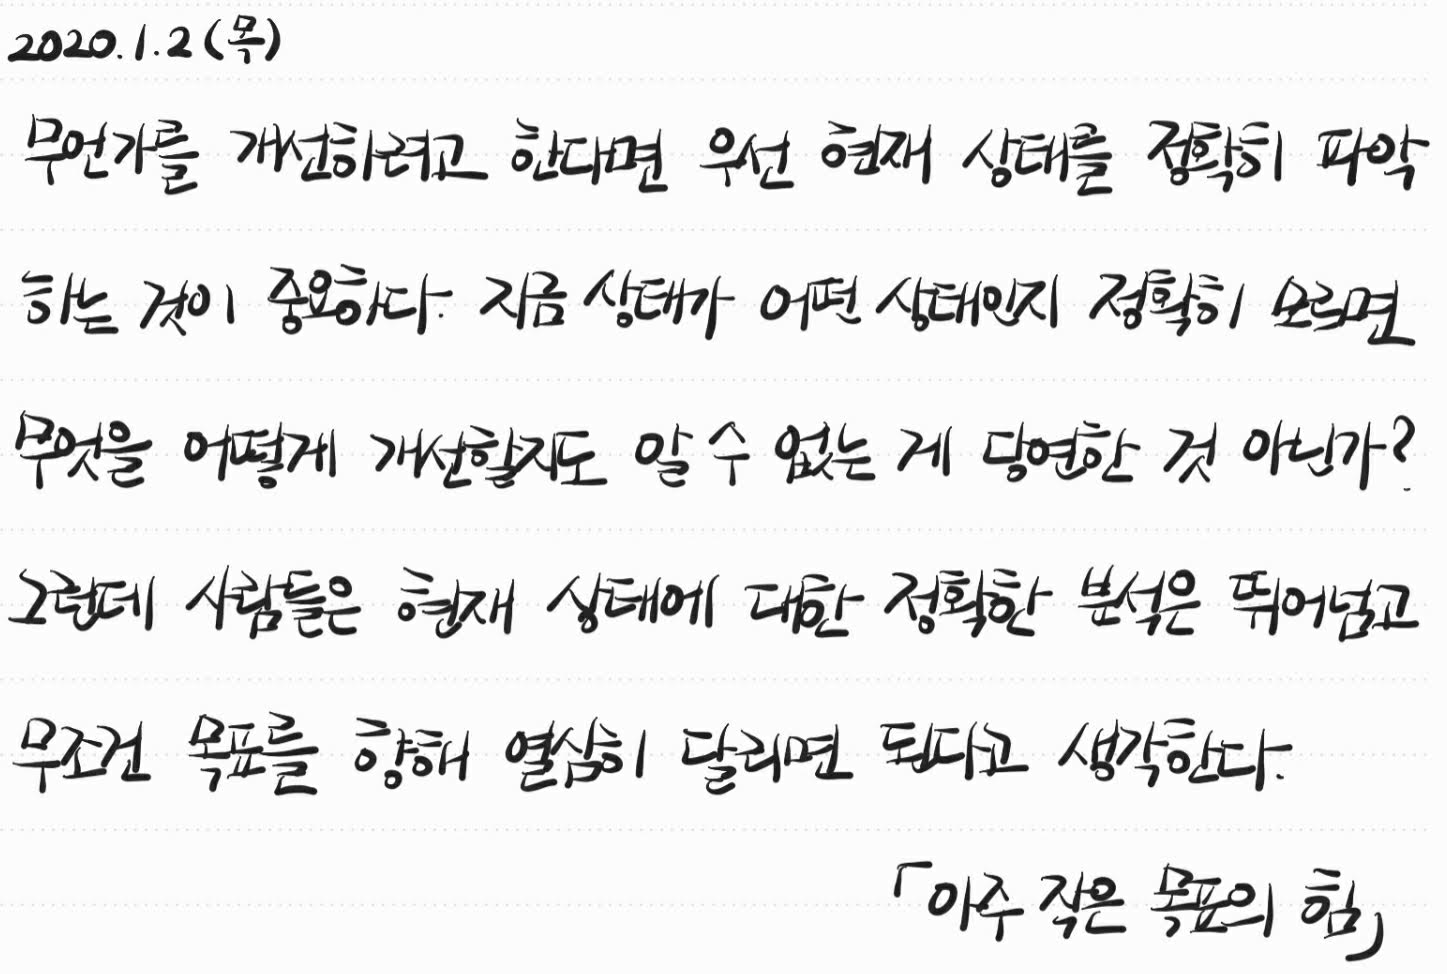 2020.1.2(목)
무언가를 개선하려고 한다면 우선 현재 상태를 정확히 파악
하는 것이 중요하다. 지금 상태가 어떤 상태인지 정확히 모르면
무엇을 어떻게 개선할지도 알 수 없는 게 당연한 것 아닌가?
그런데 사람들은 현재 상태에 대한 정확한 분석은 뛰어넘고
무조건 목표를 향해 열심히 달리면 된다고 생각한다.
「아주 작은 목표의 힘」